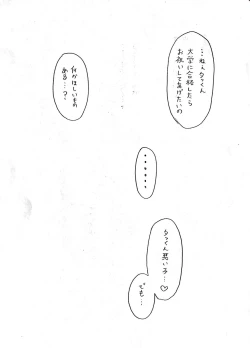 …ねぇタっくん
大学に合格したら
お祝いしてあげたいの
何かほしいもの
ある…？
……
タっくん悪い子…♡
でも…